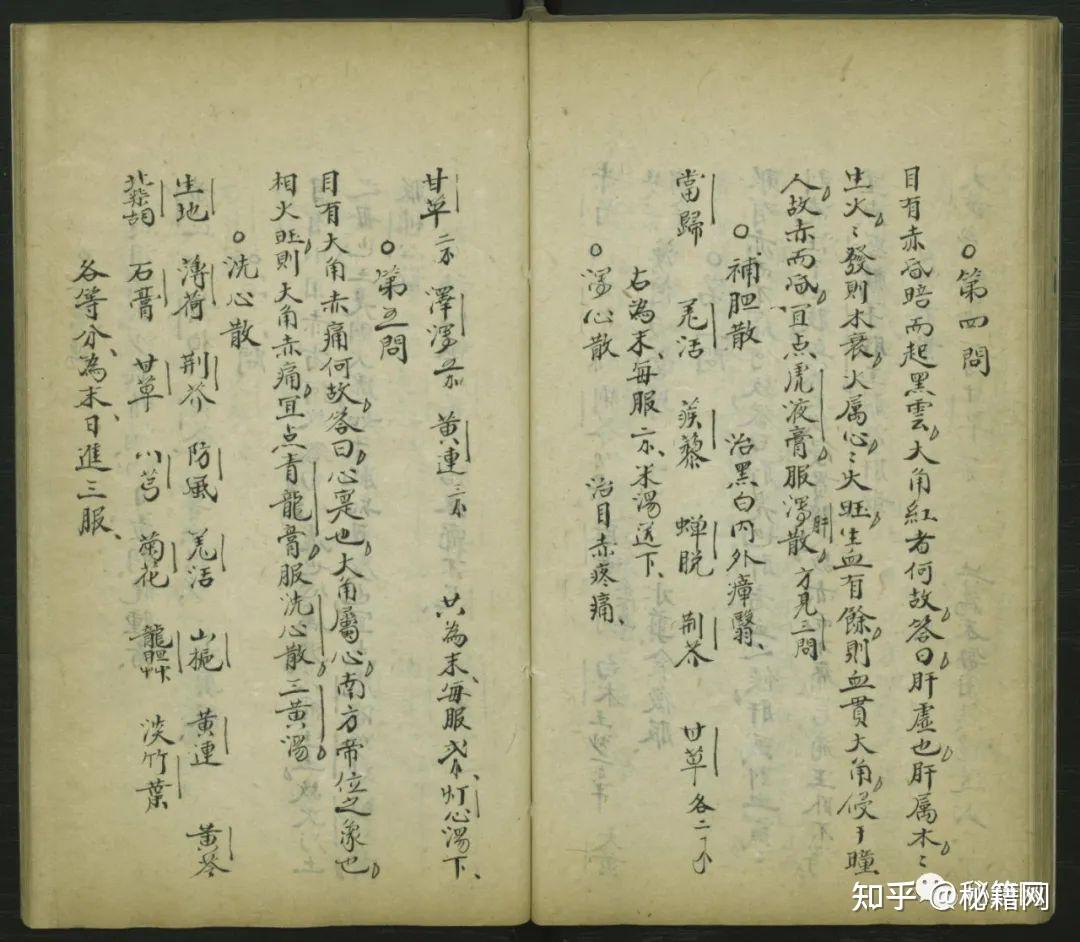 ○第四問
目有赤昏暗而起黑雲大角紅者何故答曰肝虛也肝属木〻
生火〻發則木衰火属心〻火旺生血有餘則血貫大角侵于瞳
人故赤而昏宜点虎液膏服瀉肝散方見三問
○補胆散 治黑白内外瘴翳、
當歸 羌活 蒺藜 蟬脱 荆芥 甘草各二个
右為末、每服二不、米湯送下、
○瀉心散 治目赤疼痛、
甘草二不 澤瀉 黄連三不 共為末、每服 灯心湯下、
○第五問
目有大角赤痛何故答曰心寔也大角屬心南方帝位之象也
相火旺則大角赤痛宜点青龍膏服洗心散三黄湯
○洗心散
生地 薄荷 荆芥 防風 羌活 山梔 黄連 黄芩
北柴胡 石膏 甘草 川芎 菊花 龍胆艸 淡竹葉
各等分、為末、日進三服、
知乎 @秘籍网